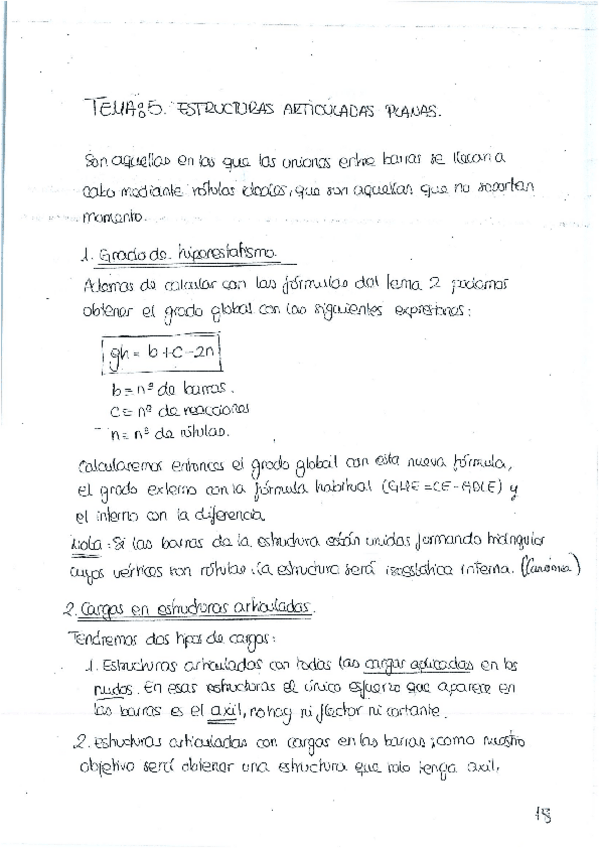 TEMA: 5. ESTRUCTURAS ARTICULADAS PLANAS.
Son aquellas en las que las uniones entre barras se llevan a
cabo mediante rótulas ideales, que son aquellas que no soportan
momento.
1. Grado de hiperestatismo.
Ademas de calcular con las fórmulas del tema 2 podemos
obtener el grado global con las siguientes expresiones:
gh = b + c - 2n
b = nº de barras.
c = nº de reacciones
n = nº de rótulas.
Calcularemos entonces el grado global con esta nueva fórmula,
el grado externo con la fórmula habitual (GHE = CE - GDLE) y
el interno con la diferencia.
Nota: Si las barras de la estructura están unidas formando triángulos
cuyos vértices son rótulas: la estructura será isostática interna. (Canónica)
2. Cargas en estructuras articuladas.
Tendremos dos tipos de cargas:
1. Estructuras articuladas con todas las cargas aplicadas en los
nudos. En esas estructuras el único esfuerzo que aparece en
las barras es el axil, no hay ni flector ni cortante.
2. estructuras articuladas con cargas en las barras; como nuestro
objetivo será obtener una estructura que solo tenga axil,
18